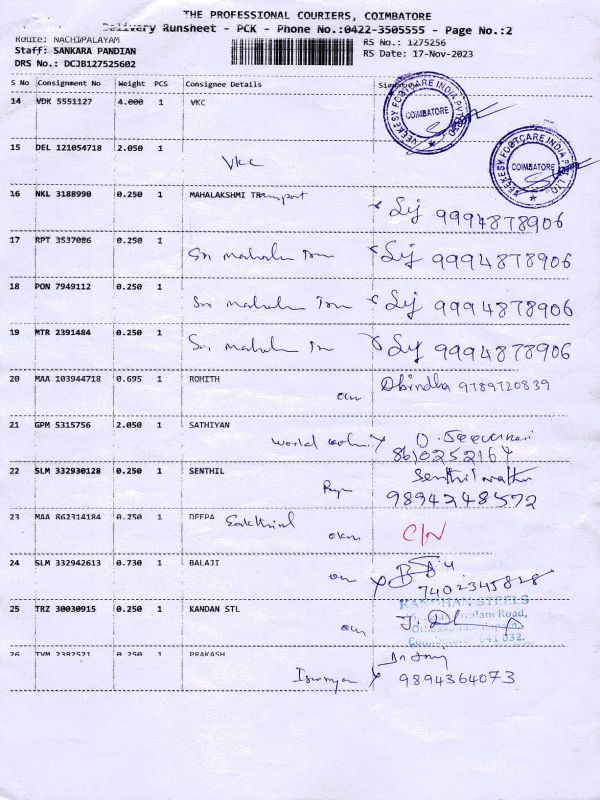 THE PROFESSIONAL COURIERS, COIMBATORE
Delivery Runsheet - PCK - Phone No.:0422-3505555 - Page No.:2
Route: NACHIPALAYAM
Staff: SANKARA PANDIAN
DRS No.: DCJB127525602
RS No.: 1275256
RS Date: 17-Nov-2023
S No Consignment No Weight PCS Consignee Details Signature
14 VDK 5551127 4.000 1 VKC
VEEKESY FOOTCARE INDIA PVT LTD
COIMBATORE
15 DEL 121054718 2.050 1 VKC
VEEKESY FOOTCARE INDIA PVT LTD
COIMBATORE
16 NKL 3188990 0.250 1 MAHALAKSHMI TRansport 9994878906
17 RPT 3537086 0.250 1 Sri 9994878906
18 PON 7949112 0.250 1 Sri 9994878906
19 MTR 2391484 0.250 1 Sri 9994878906
20 MAA 103944718 0.695 1 ROHITH Dbindha 9789720839
21 GPM 5315756 2.050 1 SATHIYAN
World D. Jeevanan
8610252164
22 SLM 332930128 0.250 1 SENTHIL Senthil
9894248572
23 MAA 862314184 0.250 1 DEEPA C/N
24 SLM 332942613 0.730 1 BALAJI
7402345828
25 TRZ 30030915 0.250 1 KANDAN STL
KANDHAN STEELS
Road,
Coimbatore - 641 032.
26 TVM 2382521 0.250 1 PRAKASH
9894364073